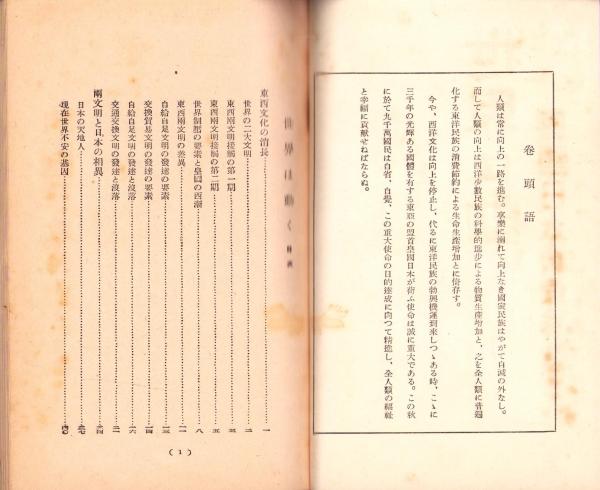 卷頭語
人類は常に向上の一路を進む。享樂に溺れて向上なき國家民族はやがて自滅の外なし。
而して人類の向上は西洋少數民族の科學的進步による物質生產增加と、之を全人類に普遍
化する東洋民族の消費節約による生命生產增加とに倚存す。
今や、西洋文化は向上を停止し、代るに東洋民族の勃興機運到來しつゝある時、こゝに
三千年の光輝ある國體を有する東亞の盟首皇國日本が荷ふ使命は誠に重大である。この秋
に於て九千萬國民は自省、自覺、この重大使命の目的達成に向つて精進し、全人類の福祉
と幸福に貢獻せねばならぬ。
世界は動く
東西文化の消長……一
世界の二大文明……二
東西兩文明接觸の第一期……三
東西兩文明接觸の第二期……五
世界制曆の要素と皇國の西漸……八
東西兩文明の差異……一一
自給自足文明の發達の要素……一三
交換貿易文明の發達の要素……一四
自給自足文明の發達と沒落……一六
交通交換文明の發達と沒落……二一
兩文明と日本の相異……三四
日本の天地人……三七
現在世界不安の基因……四〇
(1)